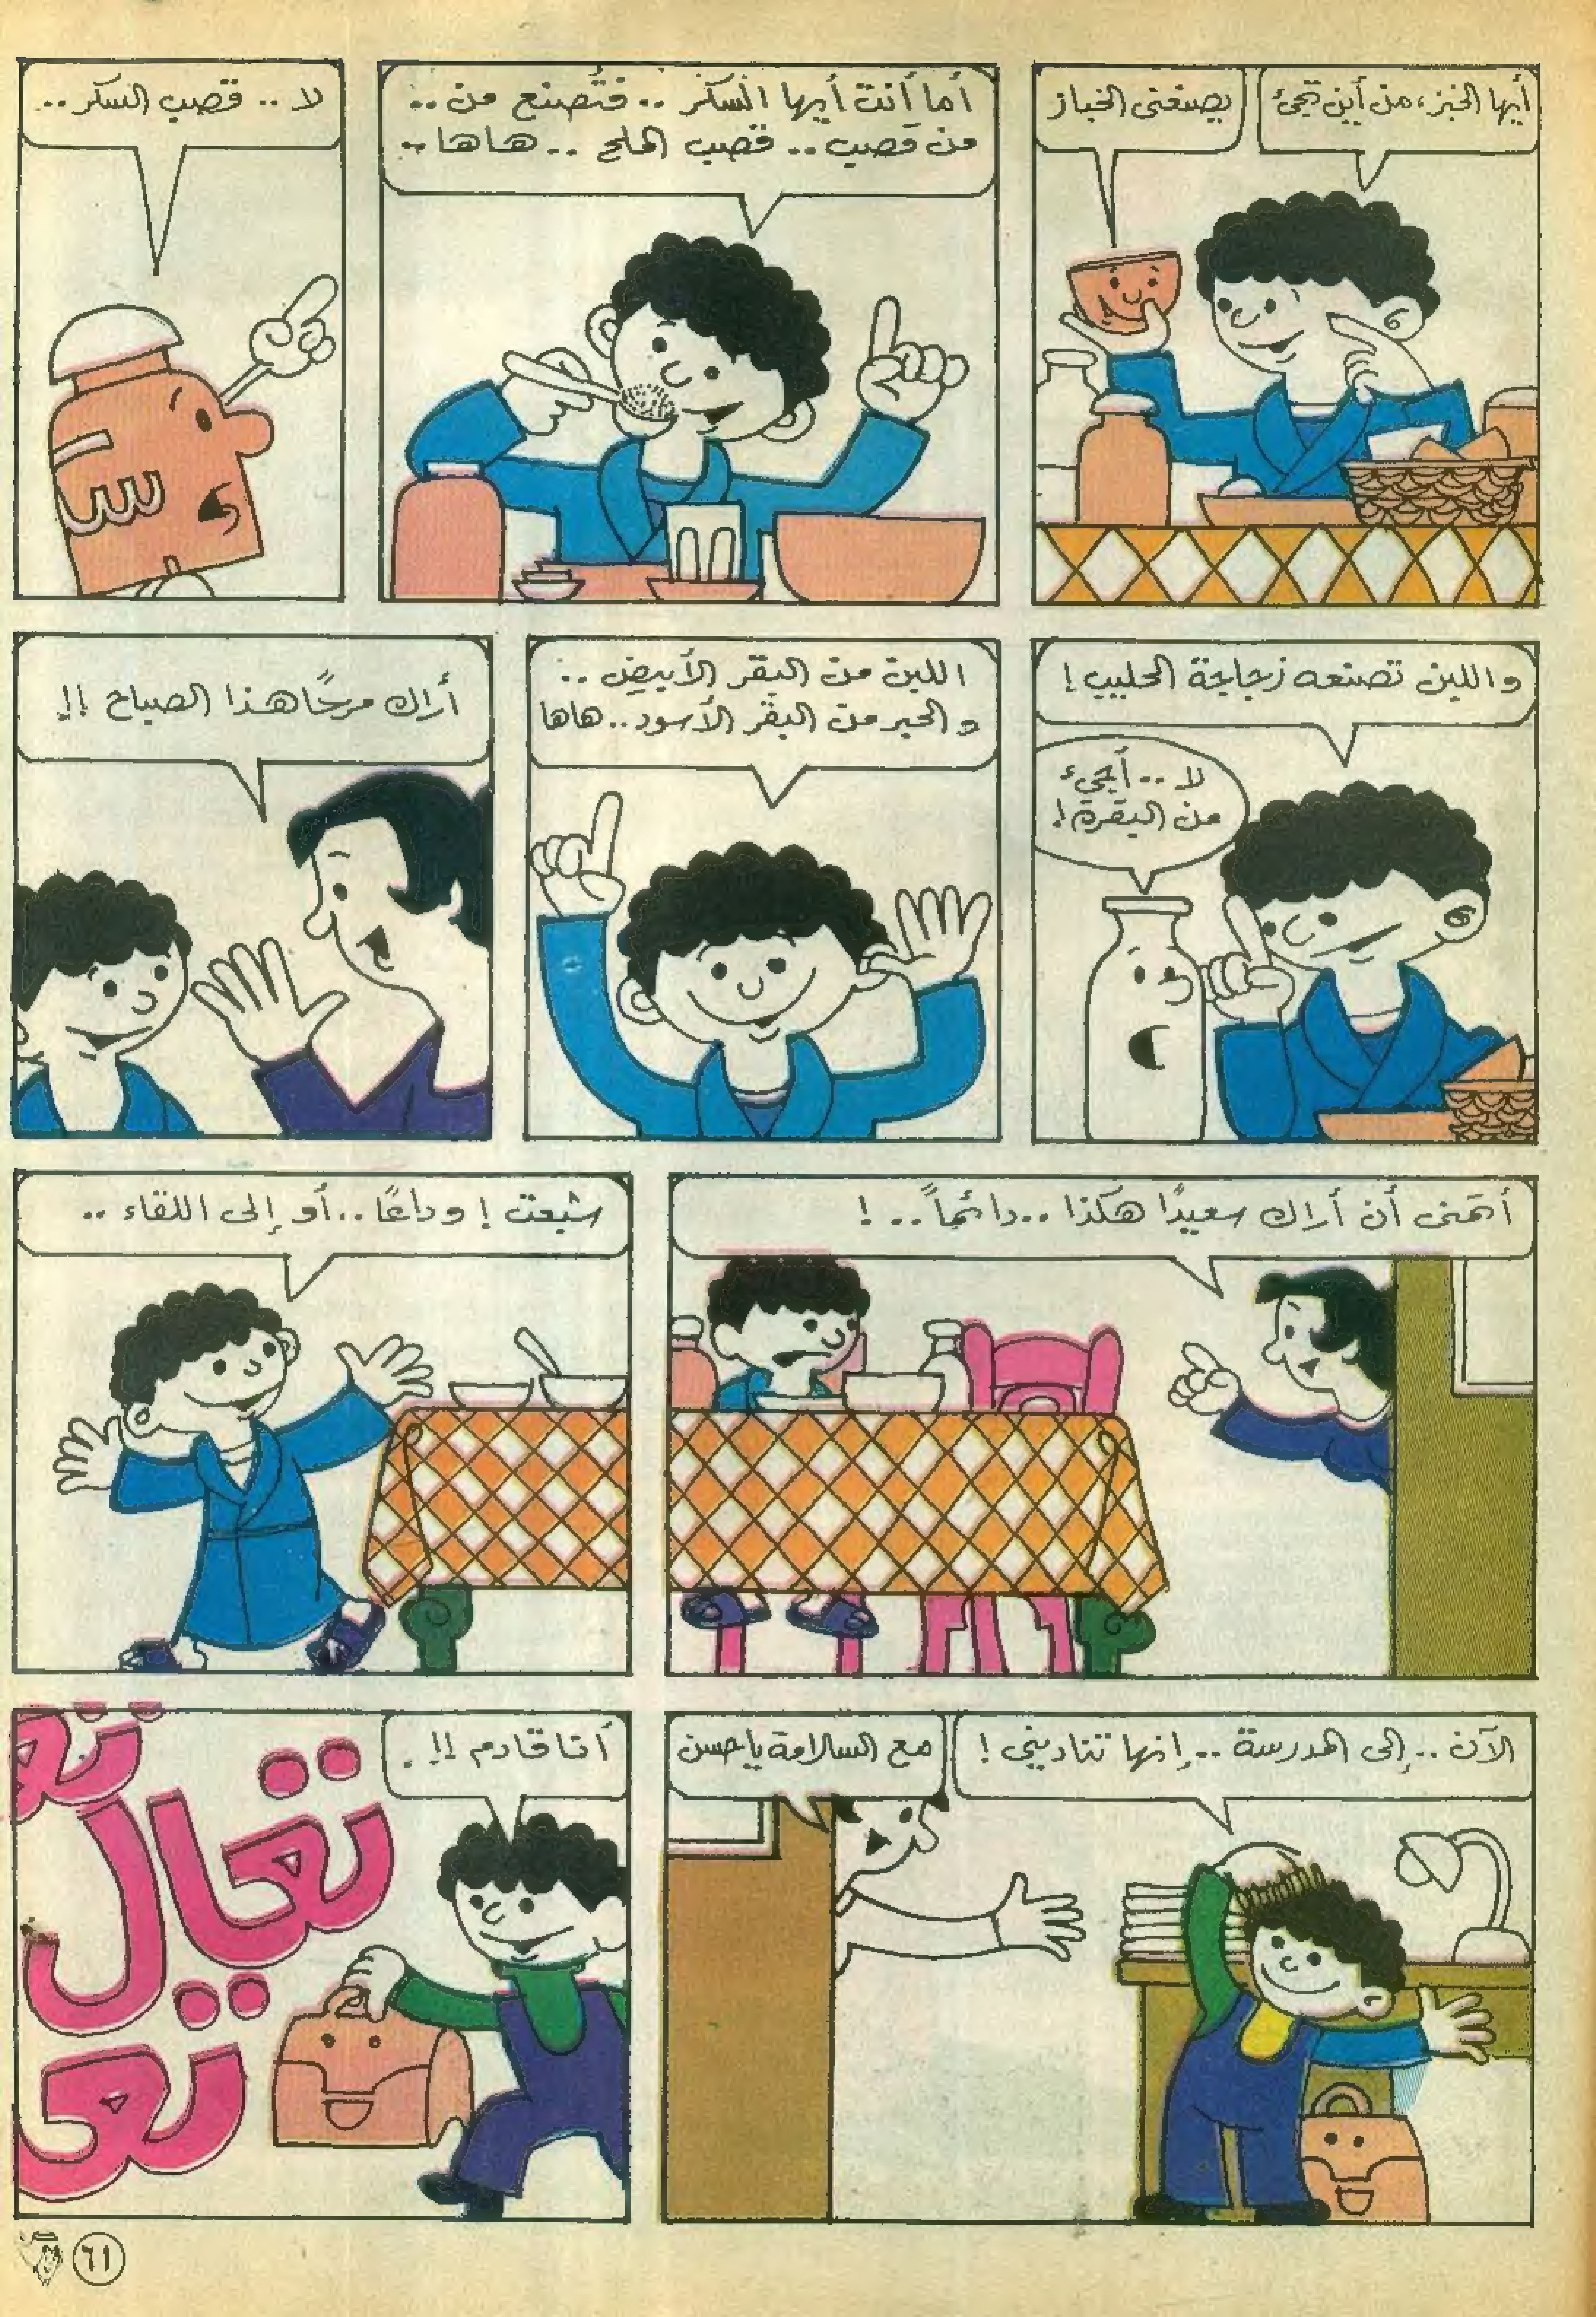 أيها الخبز، من أين تجيء
يصنعني الخباز
أما أنت أيها السكر .. فتُصنع من ..
من قصب .. قصب الملح .. هاها ..
لا .. قصب السكر ..
س
واللبن تصنعه زجاجة الحليب !
لا .. أجيء
من البقرة !
اللبن من البقر الأبيض ..
والحبر من البقر الأسود .. هاها
أراك مرحًا هذا الصباح !!
أتمنى أن أراك سعيدًا هكذا .. دائماً .. !
شبعت ! وداعًا .. أو إلى اللقاء ..
الآن .. إلى المدرسة .. إنها تناديني !
مع السلامة يا حسن
أنا قادم !!
تعـ
تعال
تعـ
٦١